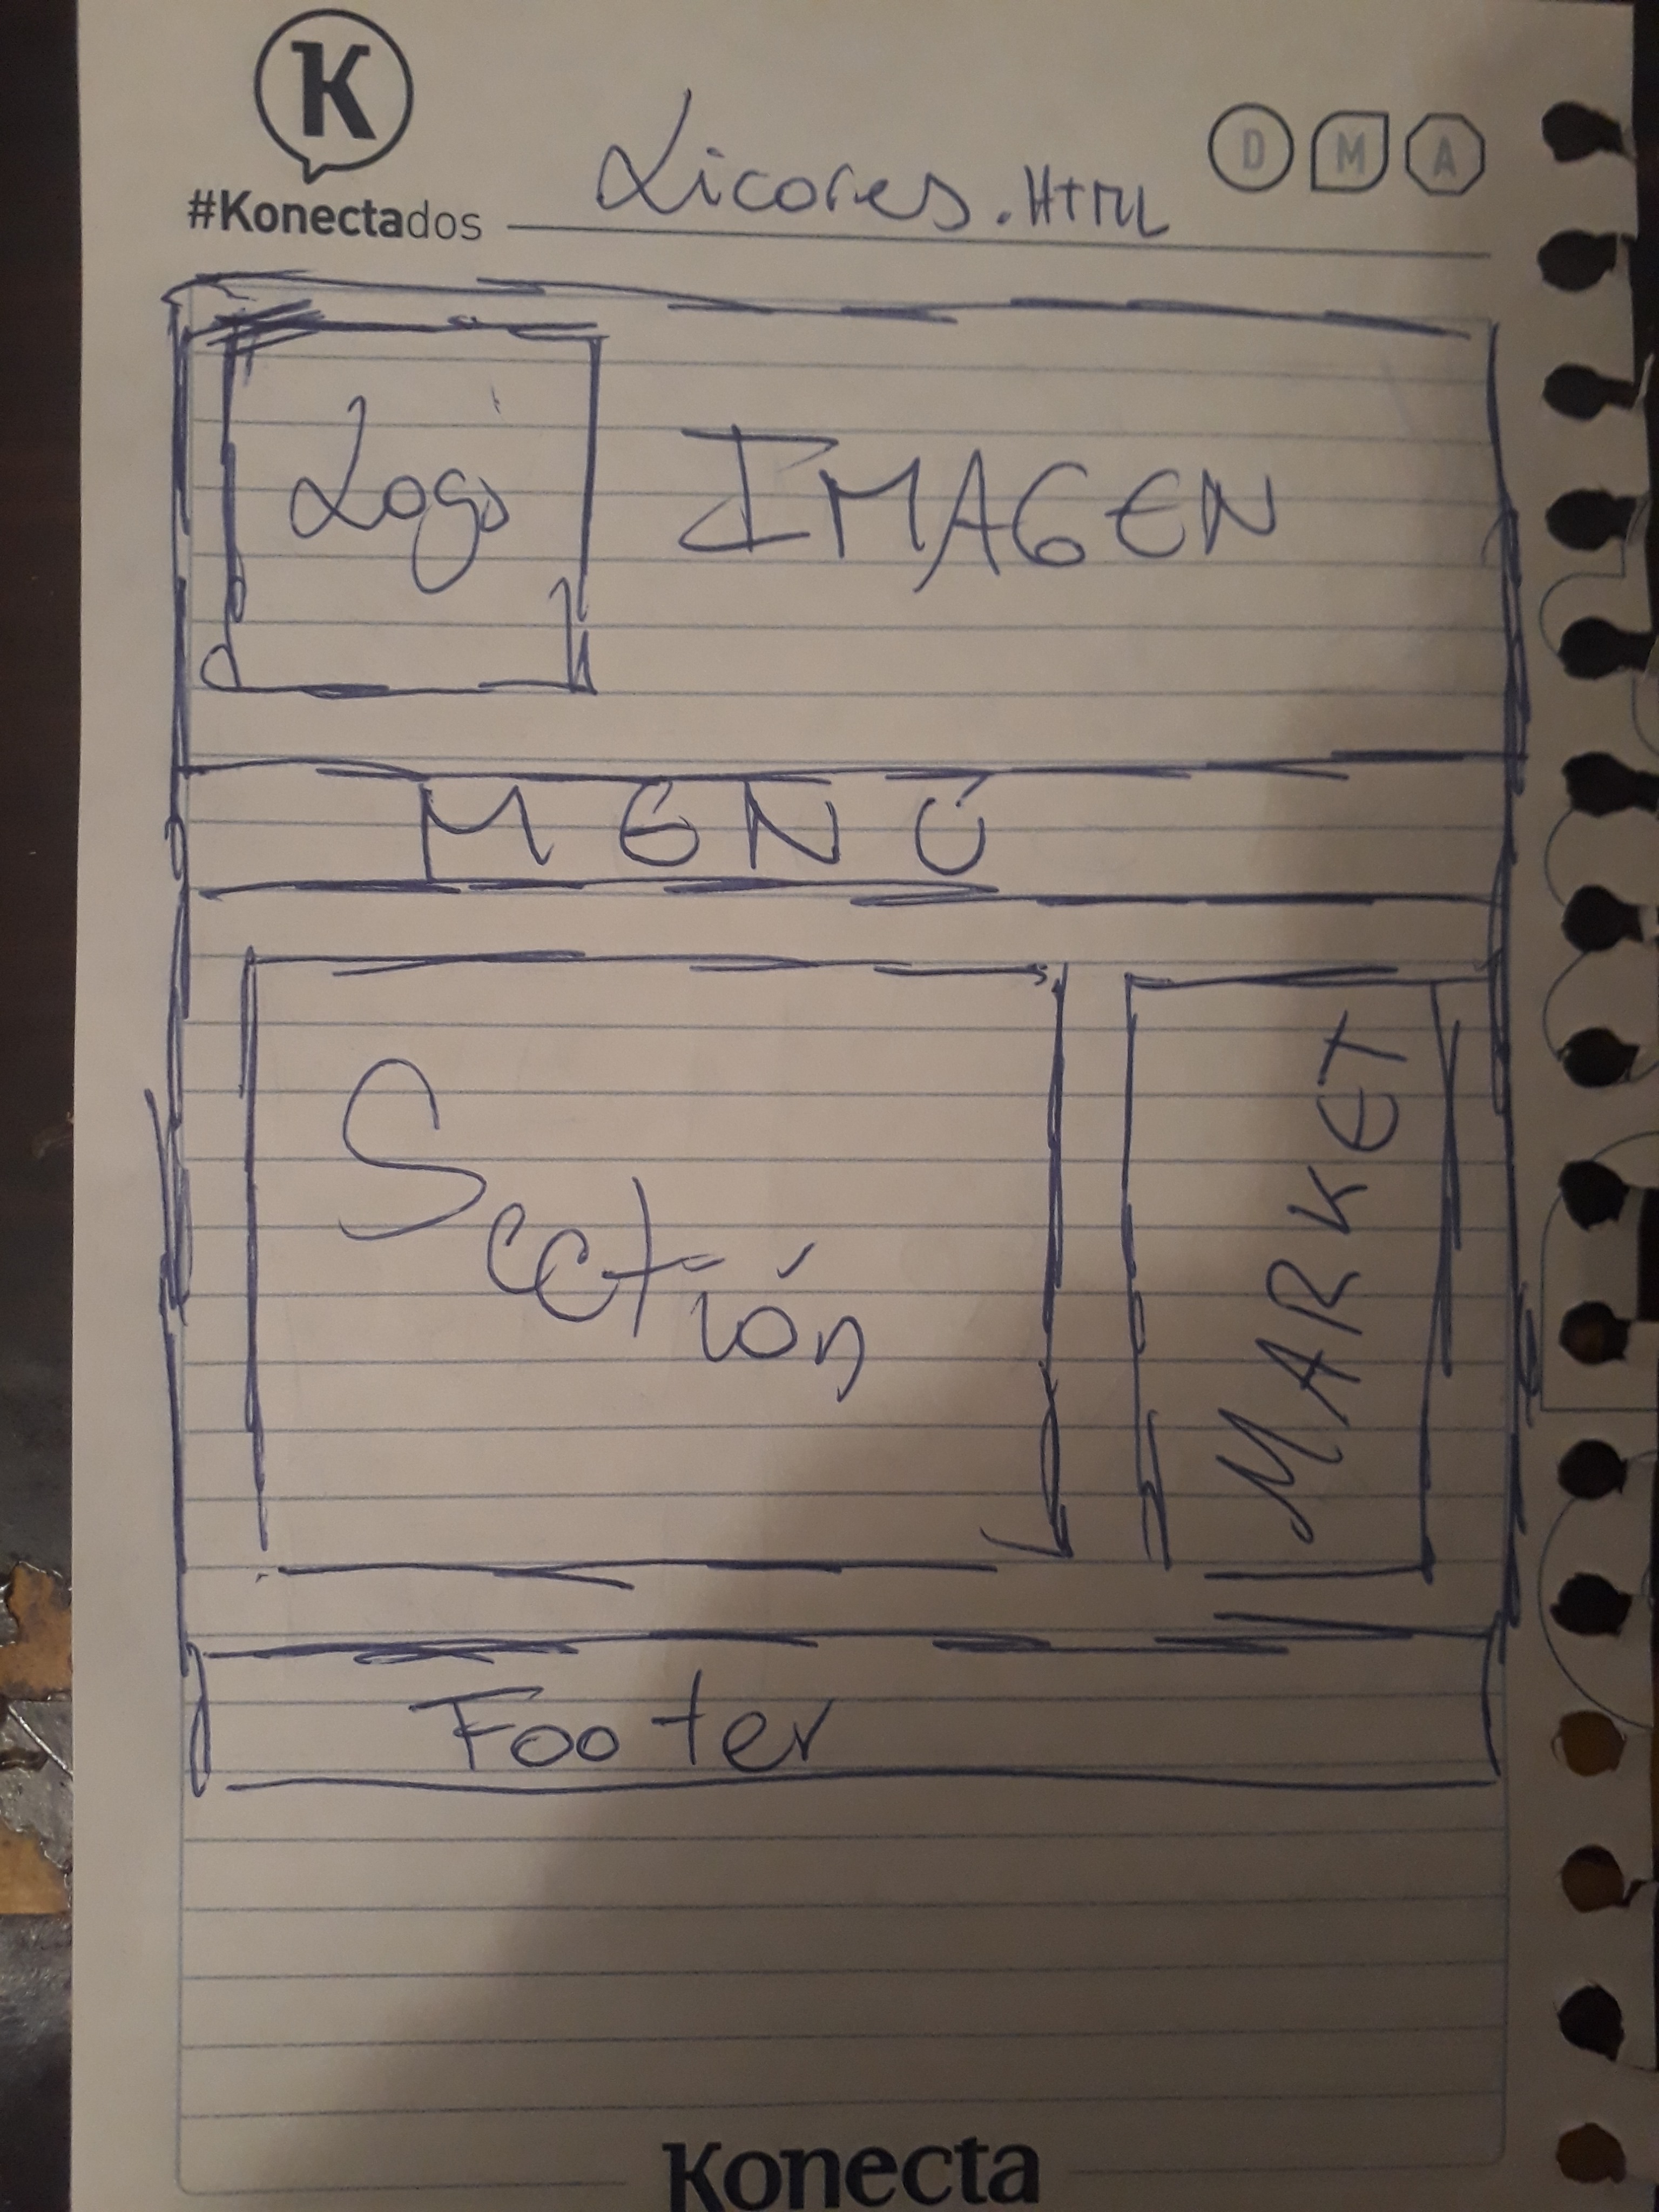 K
#Konectados
Licores.HTML
D M A
Logo
IMAGEN
MENÚ
Sectión
MARKET
Footer
Konecta